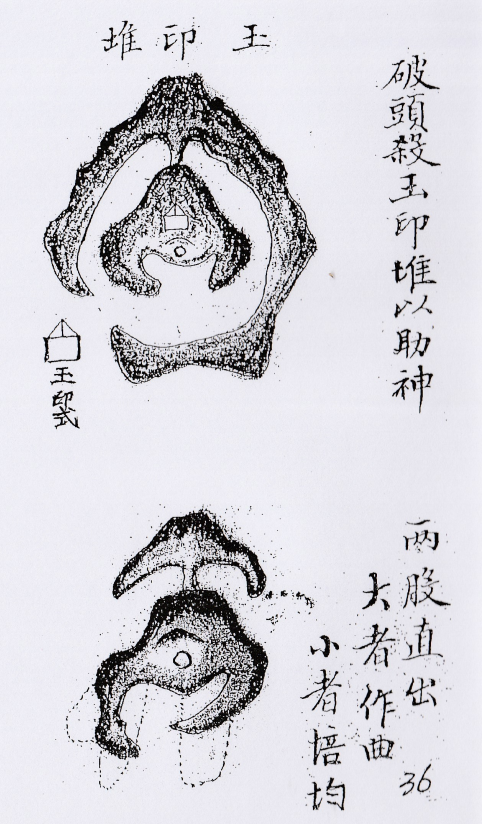 玉印堆
破頭殺玉印堆以助神
玉印式
两股直出
大者作曲
小者培均
36